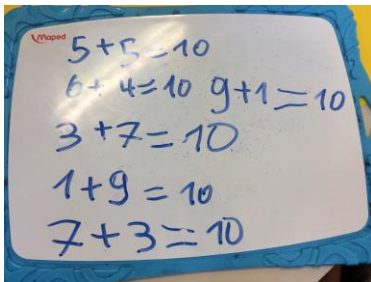 maped
5+5=10
6+4=10 9+1=10
3+7=10
1+9=10
7+3=10